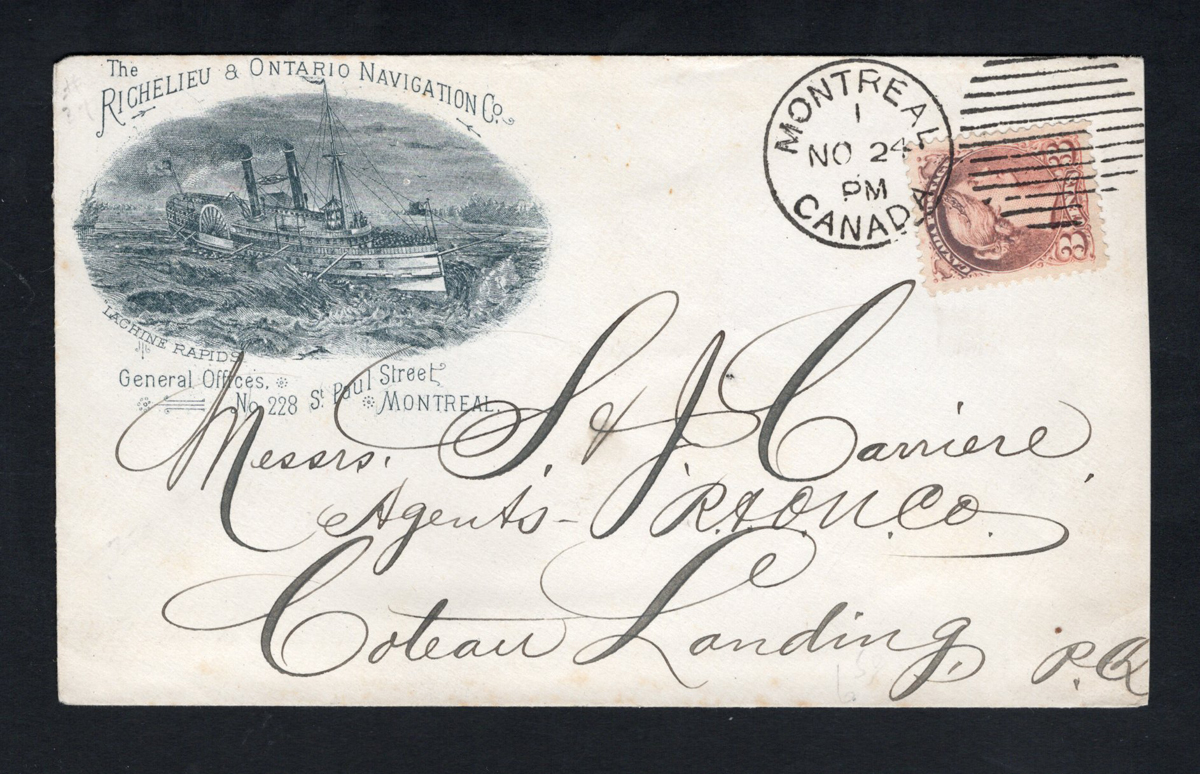 The
RICHELIEU & ONTARIO NAVIGATION Co.
LACHINE RAPIDS
General Offices,
No. 228 St. Paul Street
MONTREAL.
MONTREAL
1
NO 24
PM
CANADA
3 3
CENTS
Messrs. S. & J. Carriere,
Agents - R. & O. N. Co.
Coteau Landing, P.Q